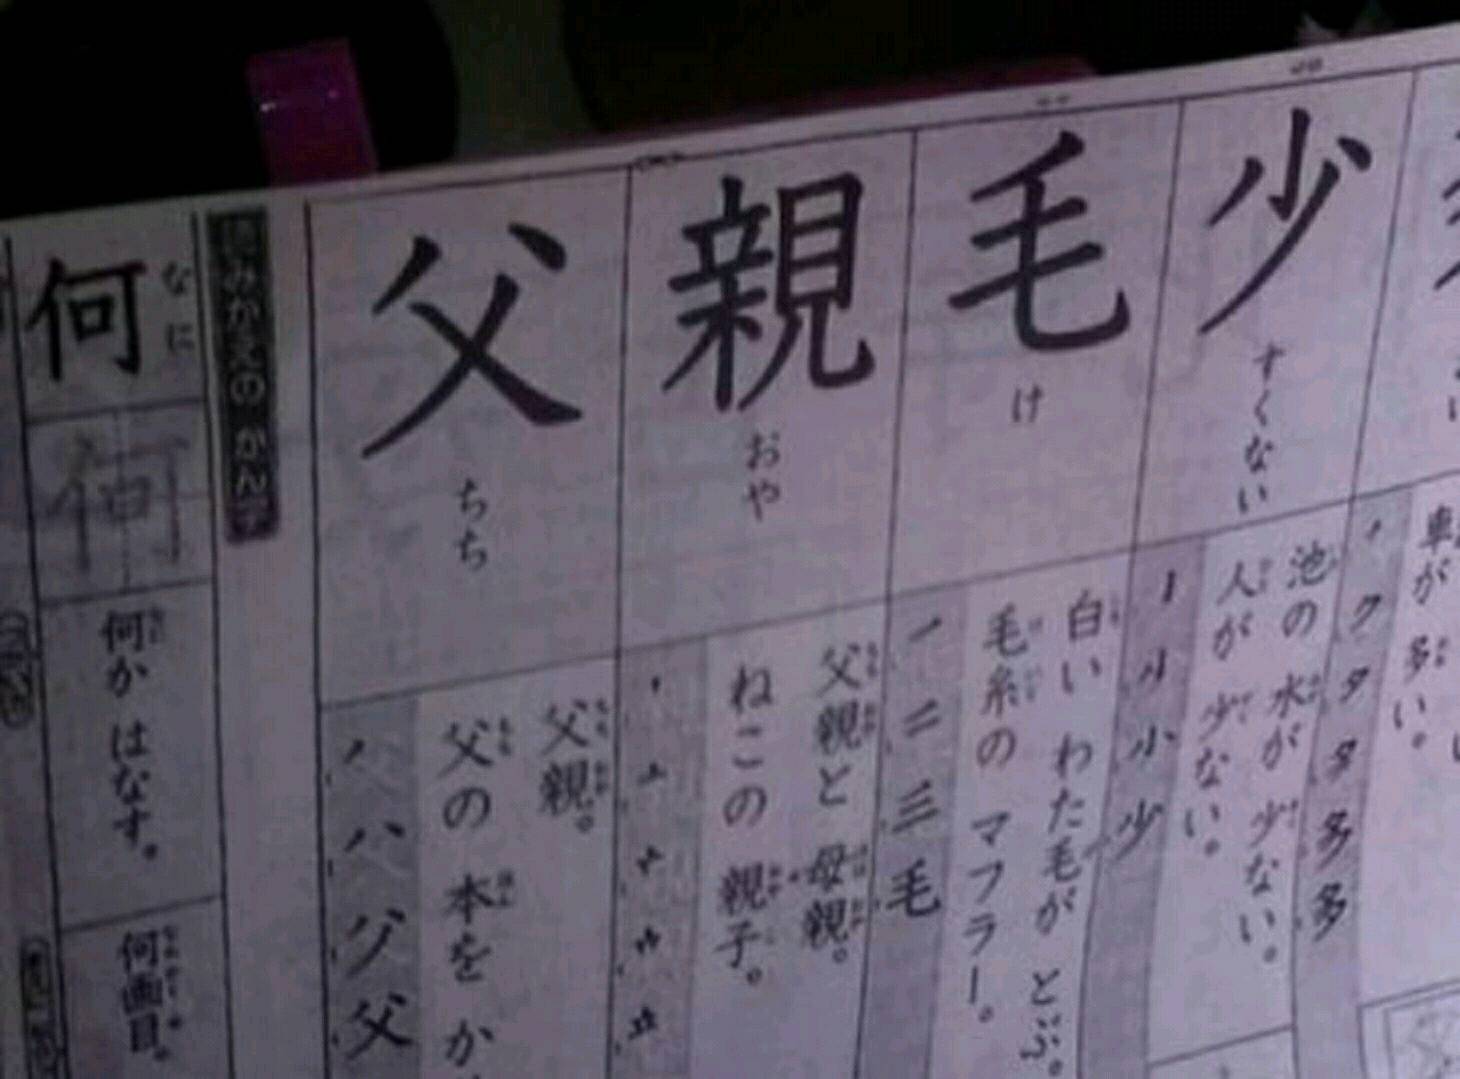 車が
多い。
ノ
ク
タ
多
多
少
すくない
池の 水が 少ない。
人が 少ない。
小
少
毛
け
白い わた毛が とぶ。
毛糸の マフラー。
一
二
三
毛
親
おや
父親と 母親。
ねこの 親子。
父
ちち
父親。
父の 本を か
ノ
ハ
父
かん字
何
なに
何
何か はなす。
何画目。